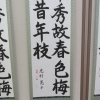 秀故春色梅
昔年枝